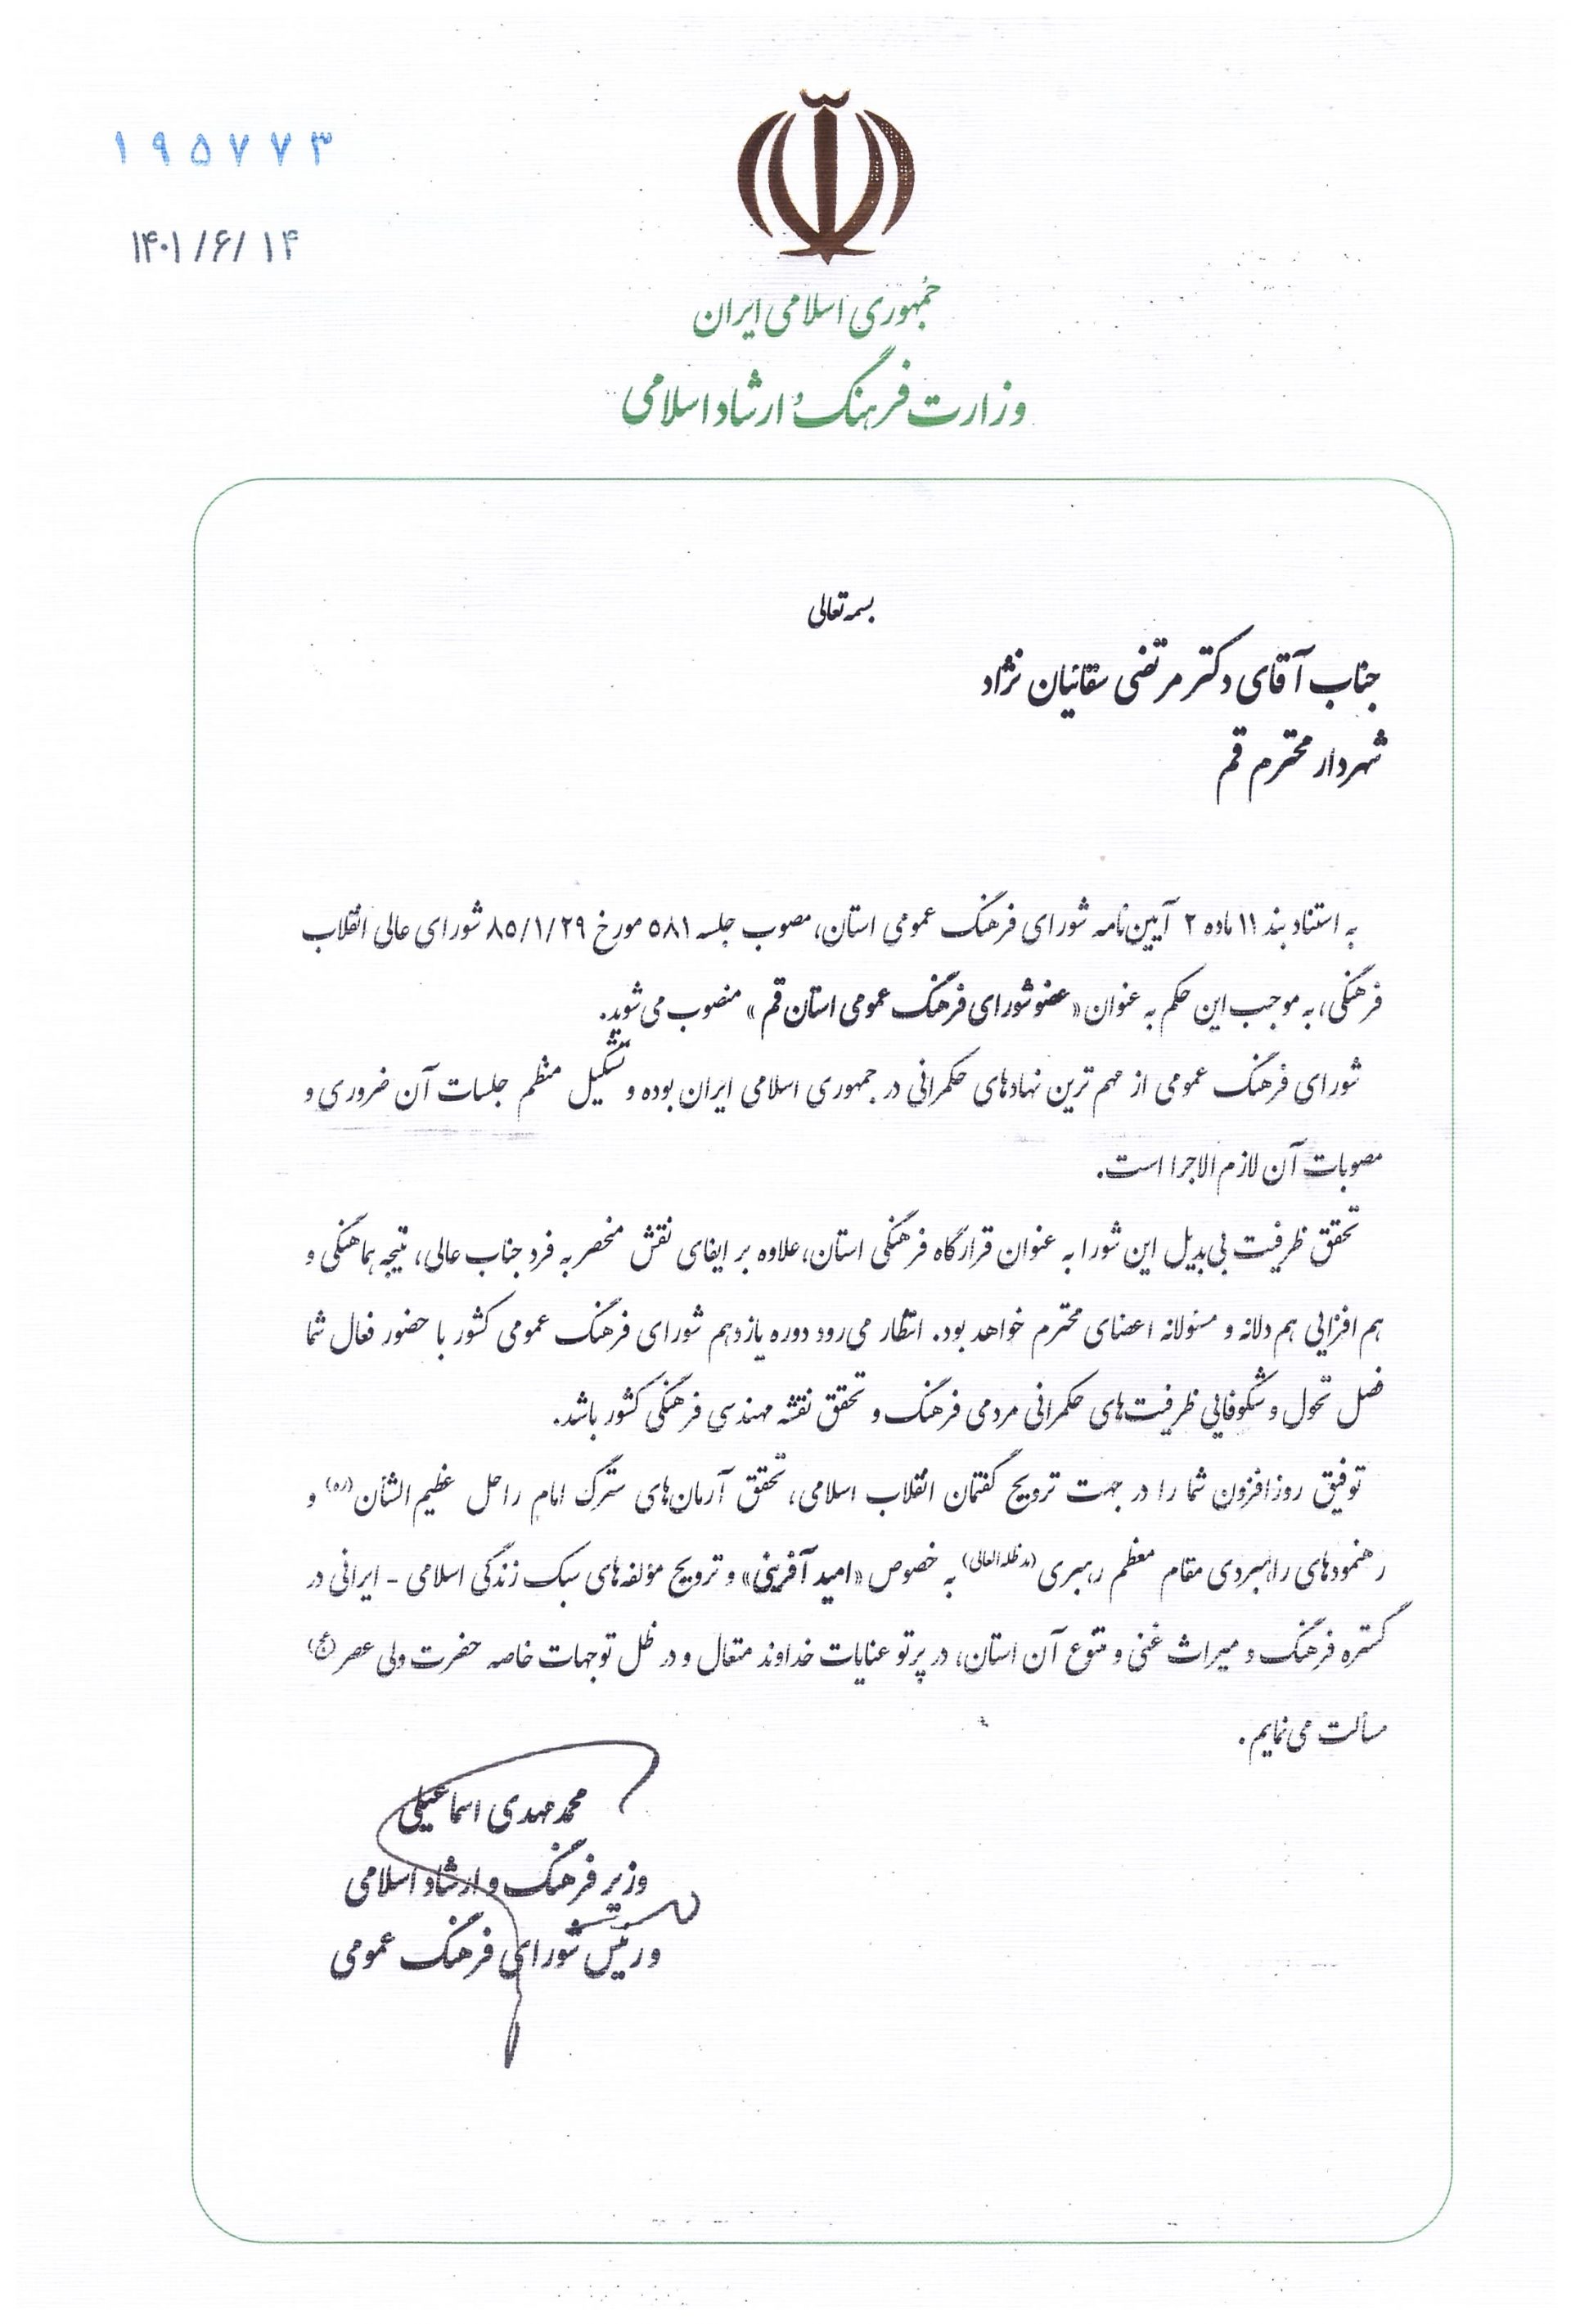 ۱۹۵۷۷۳
۱۴۰۱/۶/۱۴
جمهوری اسلامی ایران
وزارت فرهنگ و ارشاد اسلامی
بسمه تعالی
جناب آقای دکتر مرتضی سقائیان نژاد
شهردار محترم قم
به استناد بند ۱۱ ماده ۲ آیین‌نامه شورای فرهنگ عمومی استان، مصوب جلسه ۵۸۱ مورخ ۸۵/۱/۲۹ شورای عالی انقلاب
فرهنگی، به موجب این حکم به عنوان «عضو شورای فرهنگ عمومی استان قم» منصوب می‌شوید.
شورای فرهنگ عمومی از مهم ترین نهادهای حکمرانی در جمهوری اسلامی ایران بوده و تشکیل منظم جلسات آن ضروری و
مصوبات آن لازم الاجرا است.
تحقق ظرفیت بی‌بدیل این شورا به عنوان قرارگاه فرهنگی استان، علاوه بر ایفای نقش منحصر به فرد جناب عالی، نتیجه هماهنگی و
هم افزایی هم دلانه و مسئولانه اعضای محترم خواهد بود. انتظار می‌رود دوره یازدهم شورای فرهنگ عمومی کشور با حضور فعال شما
فصل تحول و شکوفایی ظرفیت‌های حکمرانی مردمی فرهنگ و تحقق نقشه مهندسی فرهنگی کشور باشد.
توفیق روزافزون شما را در جهت ترویج گفتمان انقلاب اسلامی، تحقق آرمان‌های سترگ امام راحل عظیم الشأن (ره) و
رهنمودهای راهبردی مقام معظم رهبری (مدظله العالی) به خصوص «امید آفرینی» و ترویج مؤلفه‌های سبک زندگی اسلامی - ایرانی در
گستره فرهنگ و میراث غنی و متنوع آن استان، در پرتو عنایات خداوند متعال و در ظل توجهات خاصه حضرت ولی عصر (عج)
مسألت می‌نمایم.
محمد مهدی اسماعیلی
وزیر فرهنگ و ارشاد اسلامی
و رئیس شورای فرهنگ عمومی